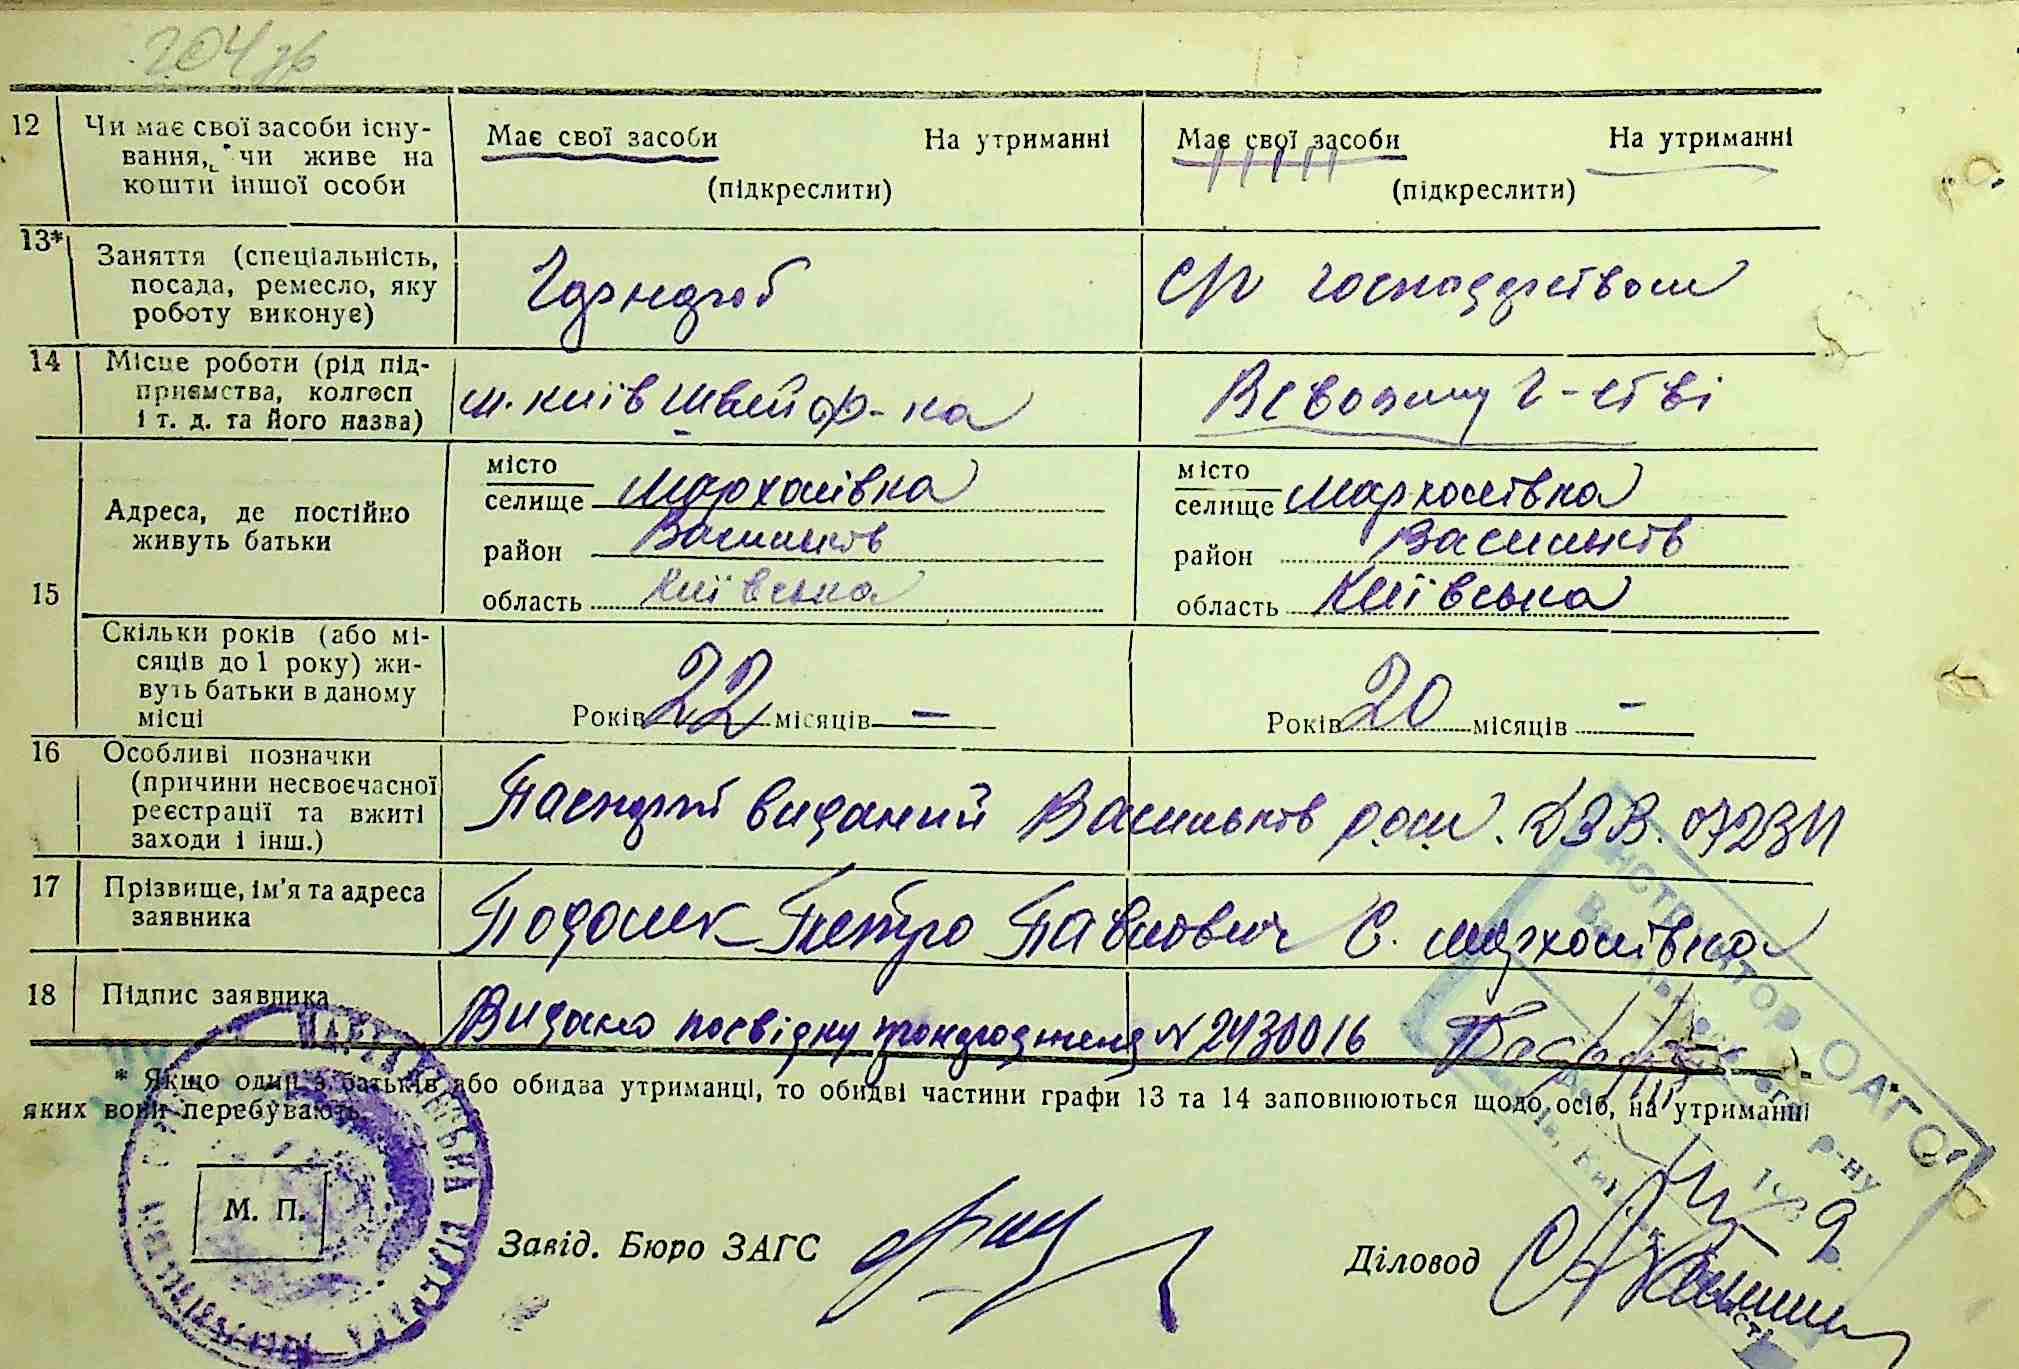 204 зв
12 Чи має свої засоби існу-
вання, чи живе на
кошти іншої особи
Має свої засоби На утриманні
(підкреслити)
Має свої засоби На утриманні
(підкреслити)
13* Заняття (спеціальність,
посада, ремесло, яку
роботу виконує)
господарством
14 Місце роботи (рід під-
приємства, колгосп
і т. д. та його назва)
м. Київ швей ф-ка
В своєму г-стві
15
Адреса, де постійно
живуть батьки
місто
селище Мархалівка
район Васильків
область Київська
місто
селище Мархалівка
район Васильків
область Київська
Скільки років (або мі-
сяців до 1 року) жи-
вуть батьки в даному
місці
Років 22 місяців —
Років 20 місяців —
16 Особливі позначки
(причини несвоєчасної
реєстрації та вжиті
заходи і інш.)
Паспорт виданий Васильків
17 Прізвище, ім'я та адреса
заявника
Петро Павлович с. Мархалівка
18 Підпис заявника
Видано посвідку про народження № 2430016
* Якщо один з батьків або обидва утриманці, то обидві частини графи 13 та 14 заповнюються щодо осіб, на утриманні
яких вони перебувають.
М. П.
Завід. Бюро ЗАГС
Діловод
Інструктор ОАГС
р-ну